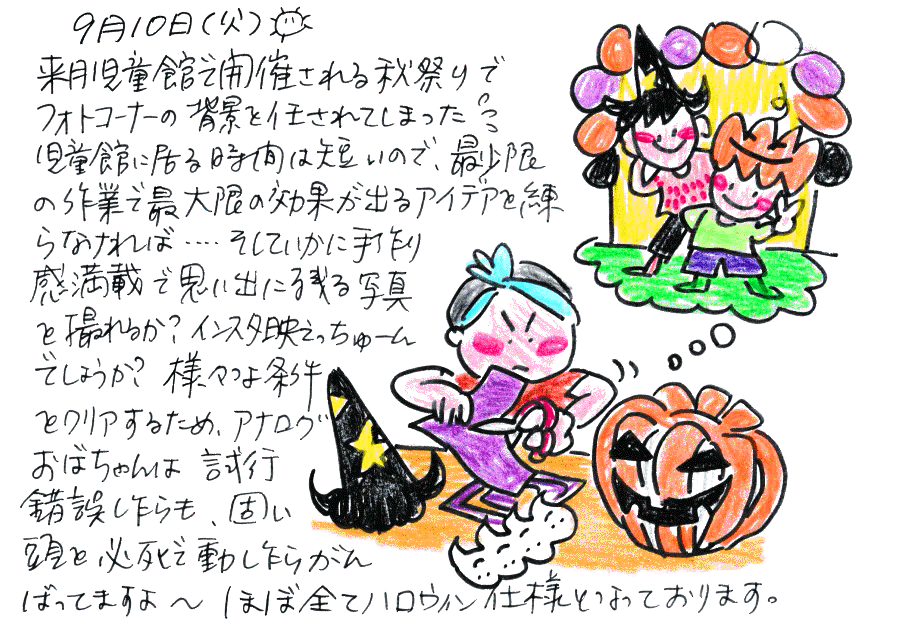 9月10日(火)
来月児童館で開催される秋祭りで
フォトコーナーの背景を任されてしまった
児童館に居る時間は短いので、最少限
の作業で最大限の効果が出るアイデアを練
らなければ‥‥そしていかに手作り
感満載で思い出に残る写真
を撮れるか?インスタ映えっちゅーん
でしょうか?様々な条件
をクリアするため、アナログ
おばちゃんは試行
錯誤しながらも、固い
頭を必死で動しながらがん
ばってますよ〜ほぼ全てハロウィン仕様となっております。